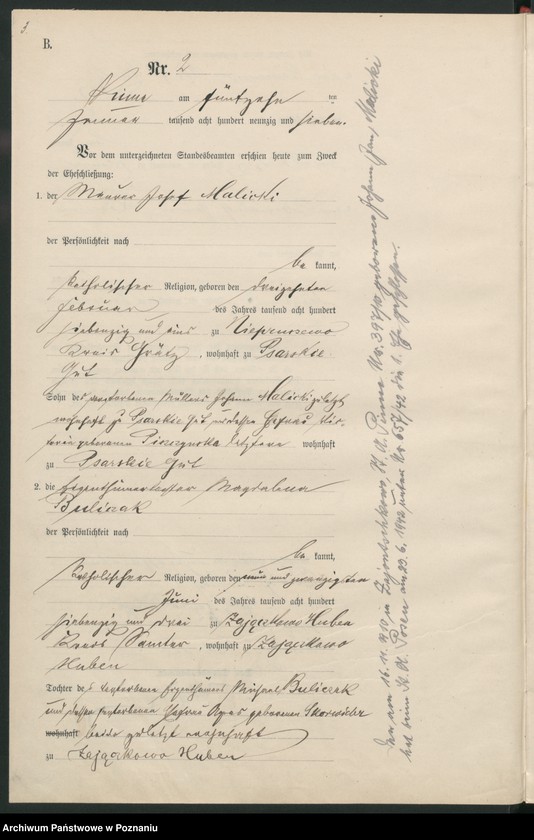 3
B.
Nr. 2
Pinne am fünfzehn ten
Januar tausend acht hundert neunzig und sieben.
Vor dem unterzeichneten Standesbeamten erschien heute zum Zweck
der Eheschließung:
1. der Maurer Josef Malicki
der Persönlichkeit nach
be kannt,
katholischer Religion, geboren den dreizehnten
Februar des Jahres tausend acht hundert
siebenzig und eins zu
Kreis Grätz, wohnhaft zu Psarskie
Gut
Sohn des verstorbenen Müllers Johann Malicki zuletzt
wohnhaft zu Psarskie Gut und dessen Ehefrau
geborenen letztere wohnhaft
zu Psarskie Gut
2. die Eigenthümertochter Magdalena
Buliczak
der Persönlichkeit nach
be kannt,
katholischer Religion, geboren den neun und zwanzigsten
Juni des Jahres tausend acht hundert
siebenzig und drei zu Zajączkowo Huben
Kreis Samter, wohnhaft zu Zajączkowo
Huben
Tochter des verstorbenen Eigenthümers Michael Buliczak
und dessen verstorbenen Ehefrau Agnes geborenen
wohnhaft beide zuletzt wohnhaft
zu Zajączkowo Huben
Der am 16.11.1910 in St. A. Pinne Nr. geborene Johann (Jan) Malicki
hat beim St. A. Posen am 23.6.1942 unter Nr 655/42 die 1. Ehe geschlossen.
Archiwum Państwowe w Poznaniu
szukajwarchiwach.pl